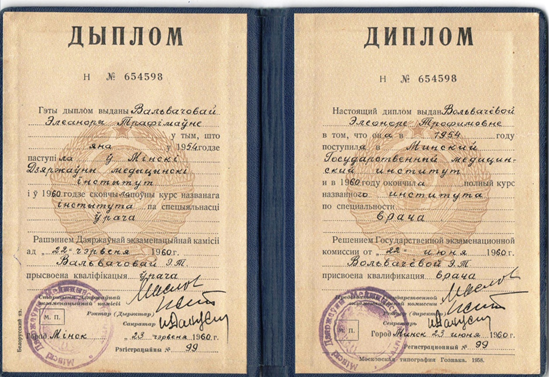 ДЫПЛОМ
Н № 654598
Гэты дыплом выданы Вальвачовай
Элеаноры Трафімаўне
у тым, што
яна у 1954 годзе
паступіла ў Мінскі
Дзяржаўны медецинскі
інстытут
і ў 1960 годзе скончыла поўны курс названага
інстытута па спецыяльнасці
ўрача
Рашэннем Дзяржаўнай экзаменацыйнай камісіі
ад „22" чэрвеня 1960 г.
Вальвачовай Э.Т.
прысвоена кваліфікацыя ўрача
Старшыня Дзяржаўнай
экзаменацыйнай камісіі
Рэктар (Дырэктар)
Сакратар
М. П.
Горад Мінск 23 чэрвеня 1960 г.
Рэгістрацыйны № 99
Беларускай яз.
ДИПЛОМ
Н № 654598
Настоящий диплом выдан Вольвачёвой
Элеоноре Трофимовне
в том, что она в 1954 году
поступила в Минский
Государственный медицин-
ский институт
и в 1960 году окончила полный курс
названного института
по специальности
врача
Решением Государственной экзаменационной
комиссии от „22" июня 1960 г.
Вольвачёвой Э.Т.
присвоена квалификация врача
Ректор (директор)
Секретарь
М. П.
Город Минск 23 июня 1960 г.
Регистрационный № 99
Московская типография Гознака. 1958.